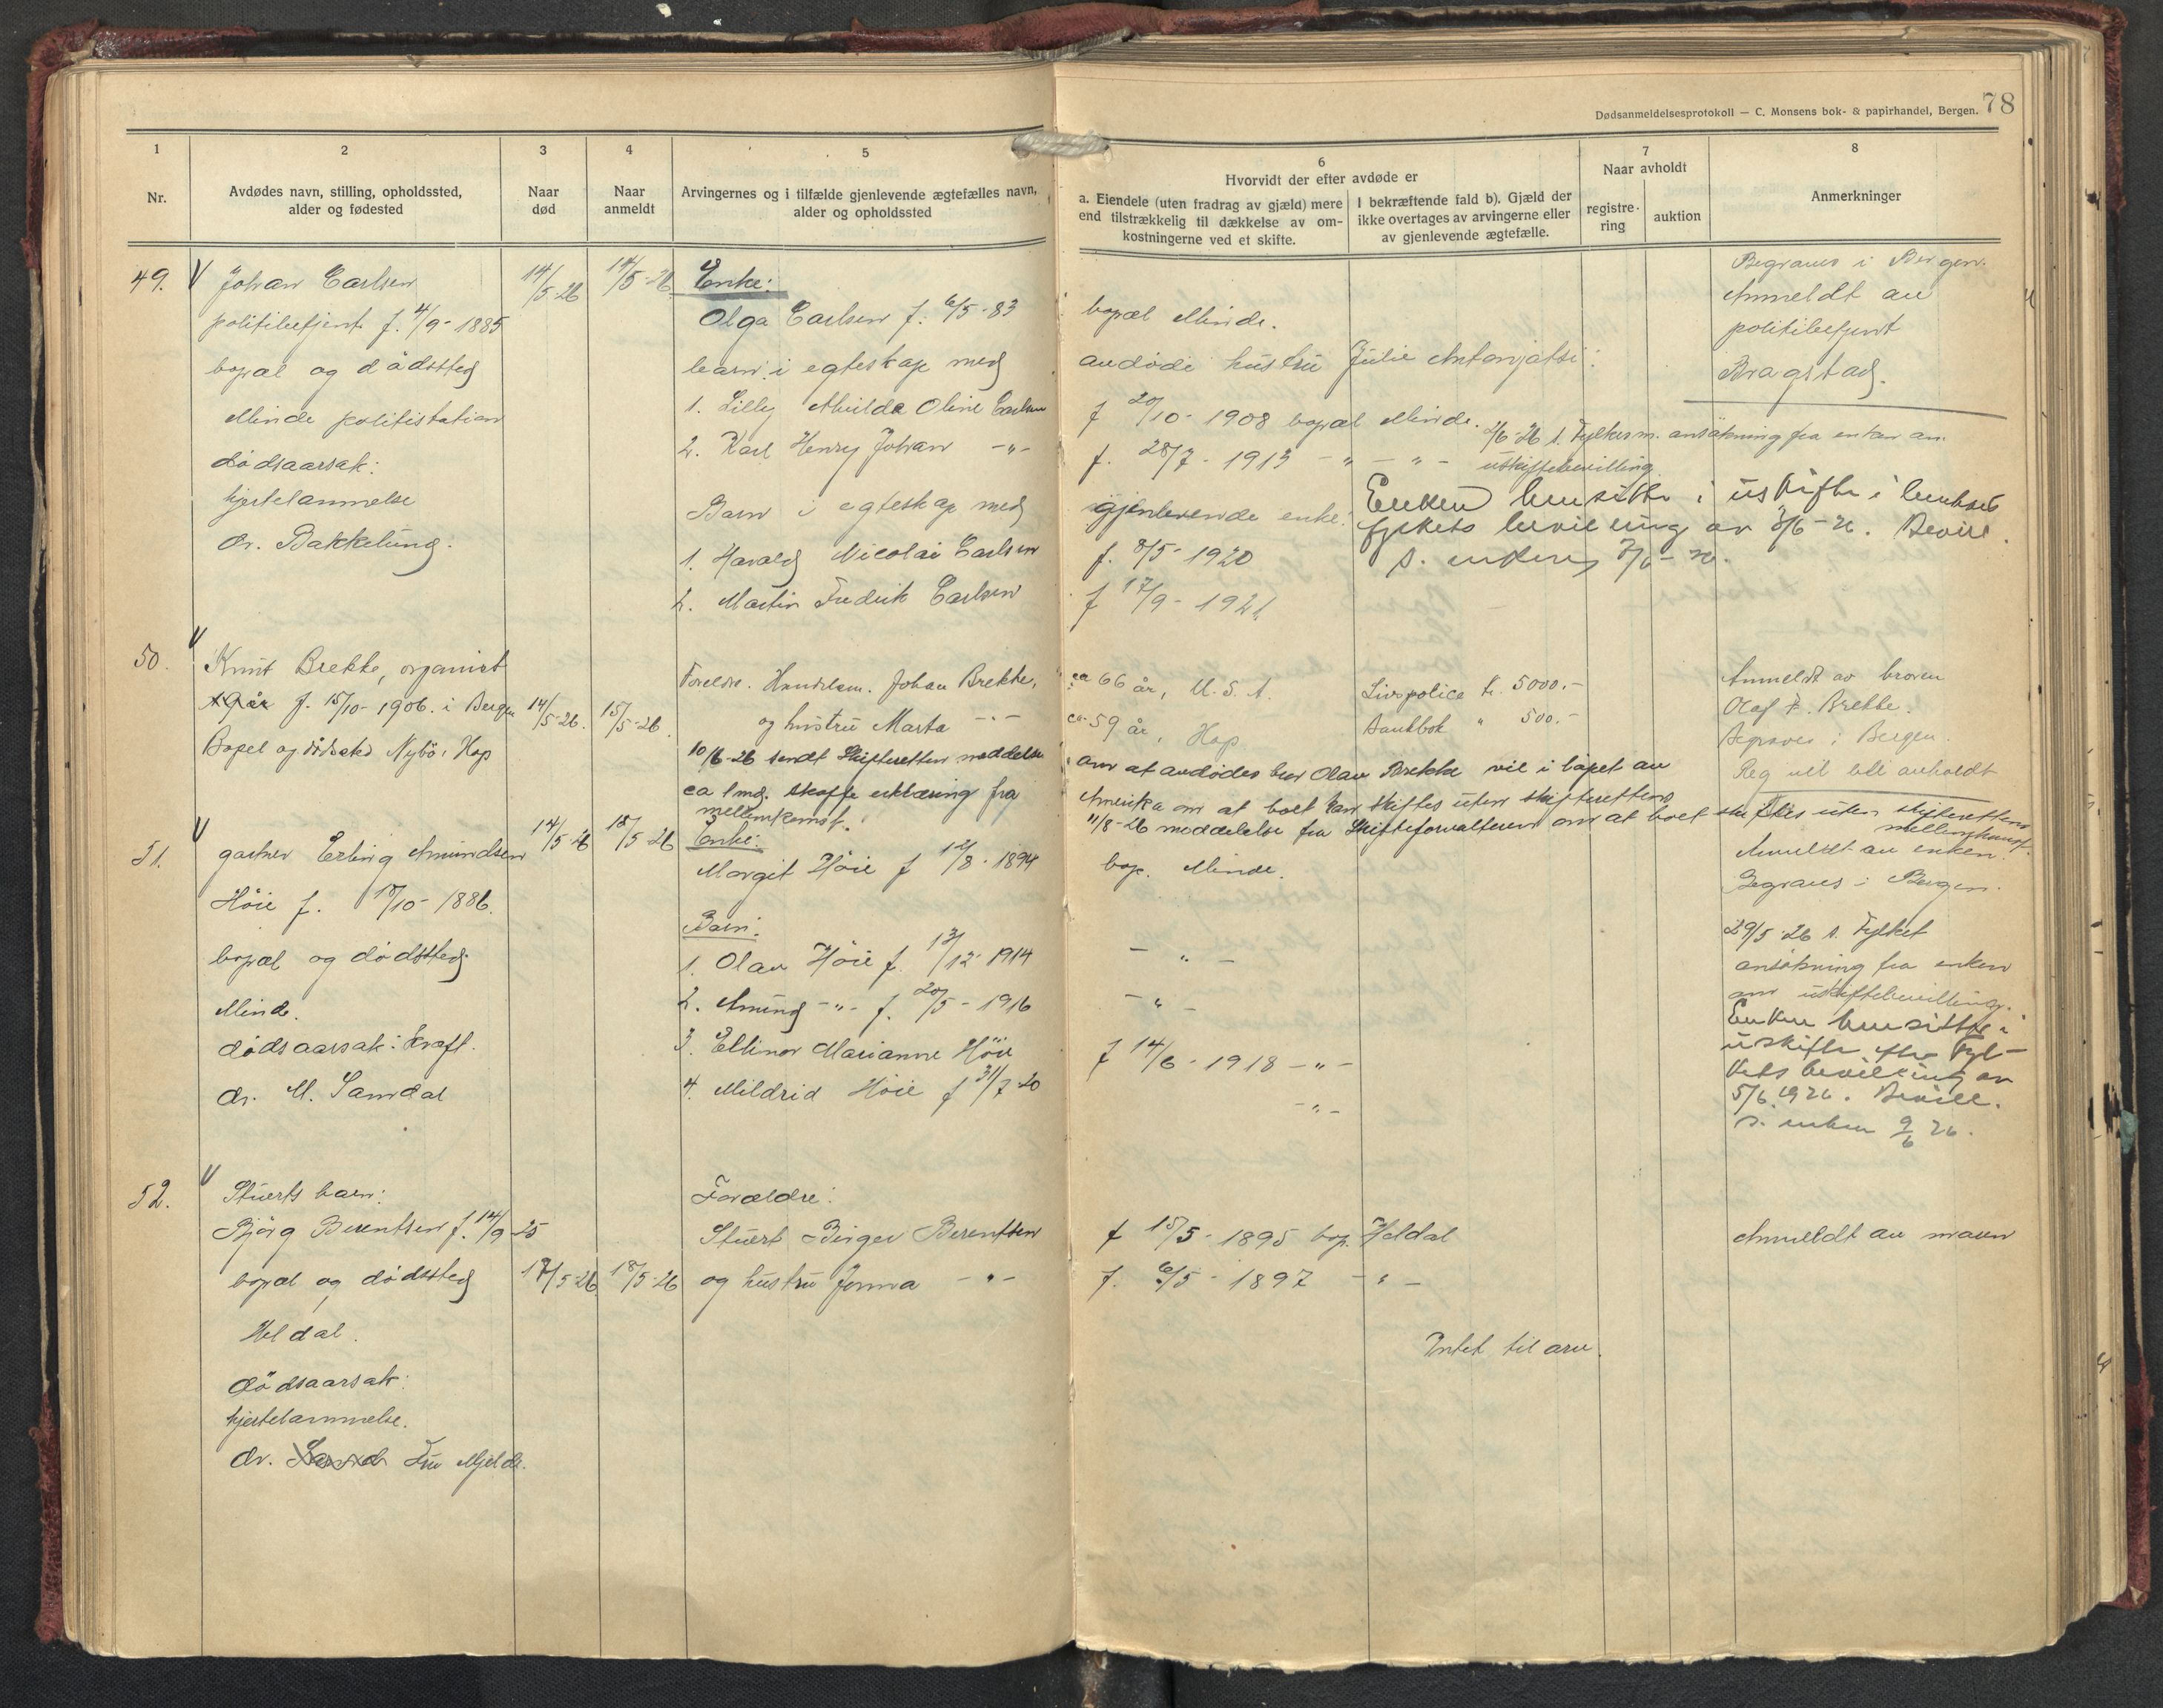 Dødsanmeldelsesprotokoll — C. Monsens bok- & papirhandel, Bergen. 78
1
Nr.
2
Avdødes navn, stilling, opholdssted,
alder og fødested
3
Naar
død
4
Naar
anmeldt
5
Arvingernes og i tilfælde gjenlevende ægtefælles navn,
alder og opholdssted
6
Hvorvidt der efter avdøde er
a. Eiendele (uten fradrag av gjæld) mere
end tilstrækkelig til dækkelse av om-
kostningerne ved et skifte.
I bekræftende fald b). Gjæld der
ikke overtages av arvingerne eller
av gjenlevende ægtefælle.
7
Naar avholdt
registre-
ring
auktion
8
Anmerkninger
49. Johan Carlsen
politibetjent f. 4/9- 1885
bopæl og dödssted
Minde politistation
dödsaarsak:
hjertelammelse
dr. Bakkelung.
14/5-26
14/5-26
Enke:
Olga Carlsen f. 6/5-83
barn i egteskap med
1. Lilly Mulda Oline Carlsen
2. Karl Henry Johan -"-
Barn i egteskap med
1. Harald Nicolai Carlsen
2. Martin Fredrik Carlsen
bopæl Minde.
avdöde hustru Julie
f 20/10- 1908 bopæl Minde.
f. 28/7- 1913 -"- -"-
gjenlevende enke:
f. 8/5- 1920
f 17/9- 1921
2/6-26 s. Fylkesm. ansökning fra enken om
uskiftebevilling.
Enken hensitte i uskifte i henhold
fylkets bevilling av 3/6-26. Bevill.
s. enken 7/6-26.
Begraves i Bergen.
Anmeldt av
politibetjent
Bragstad.
50. Knut Brekke, organist
19 år f. 15/10- 1906. i Bergen
Bopel og dödssted Nybö, Hop
14/5-26.
15/5-26.
Foreldre. Handelsm. Johan Brekke,
og hustru Marta -"-
10/6-26 sendt Skifteretten meddelelse
ca 1 md. skaffe erklæring fra
mellemkomst.
ca 66 år, U.S.A.
ca 59 år, Hop
Livspolice kr. 5000.-
Bankbok " 500.-
om at avdödes bror Olav Brekke vil i löpet av
Amerika om at boet kan skiftes uten skifterettens
11/8-26 meddelelse fra Skifteforvalteren om at boet skiftes uten skifterettens
mellemkomst.
Anmeldt av broren
Olaf F. Brekke.
Begraves i Bergen.
Reg vil bli avholdt
51. gartner Erling Amundsen
Höie f. 18/10- 1886.
bopæl og dödssted
Minde.
dödsaarsak: kræft.
dr. M. Samdal
14/5-26
15/5-26
Enke:
Margit Höie f 12/8- 1894
Barn:
1. Olav Höie f. 13/12- 1914
2. Amund -"- f. 20/5- 1916
3. Ellinor Marianne Höie
4. Mildrid Höie f 31/7-20
bop. Minde.
- " -
- " -
f 14/6- 1918 -"-
-"-
Anmeldt av enken.
Begraves i Bergen.
29/5-26 s. Fylket
ansökning fra enken
om uskiftebevilling.
Enken hensitte i
uskifte efter Fyl-
kets bevilling av
5/6 1926. Bevill.
s. enken 9/6 26.
52. Stuerts barn:
Björg Berentsen f. 14/9-25
bopæl og dödssted
Heldal.
dödsaarsak:
hjertelammelse.
dr. Fru Mjelde.
17/5-26
18/5-26
Forældre:
Stuert Birger Berentsen
og hustru Jenna -"-
f 15/5- 1895 bop. Heldal
f. 6/5- 1897 -"-
Intet til arv.
Anmeldt av mann